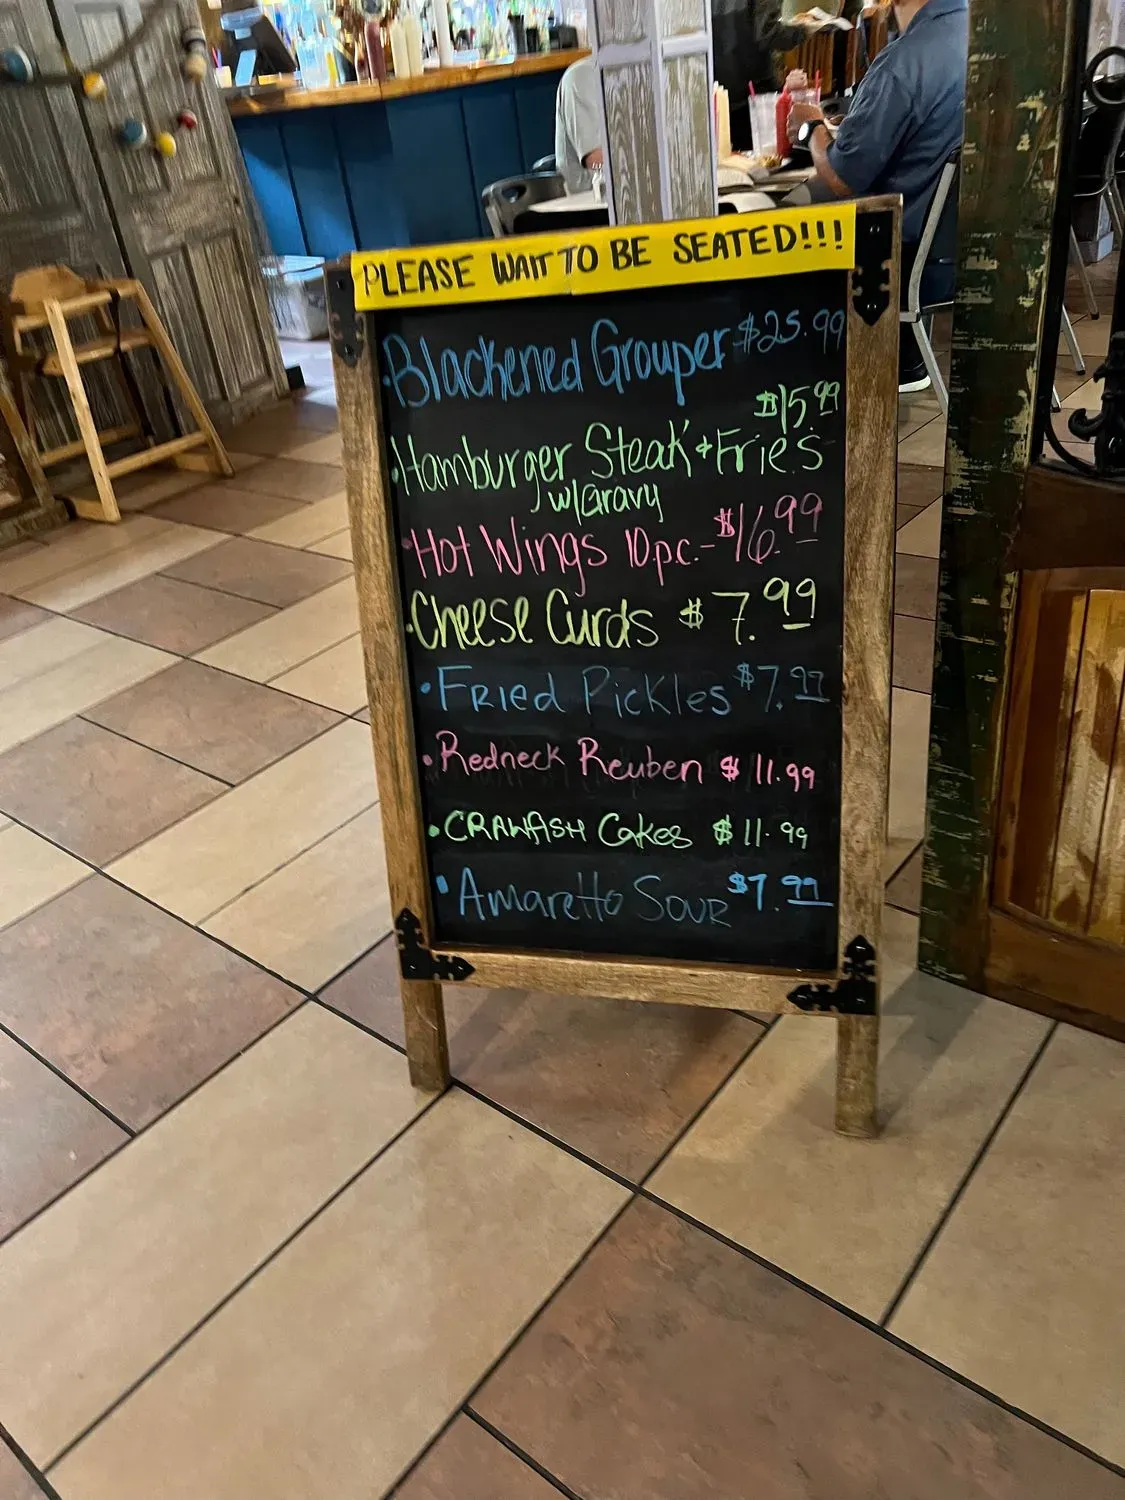 PLEASE WAIT TO BE SEATED!!!
·Blackened Grouper $25.99
$15.99
·Hamburger Steak + Fries
w/Gravy
·Hot Wings 10p.c.- $16.99
·Cheese Curds $7.99
·Fried Pickles $7.99
·Redneck Reuben $11.99
·CRAWFISH Cakes $11.99
·Amaretto Sour $7.99